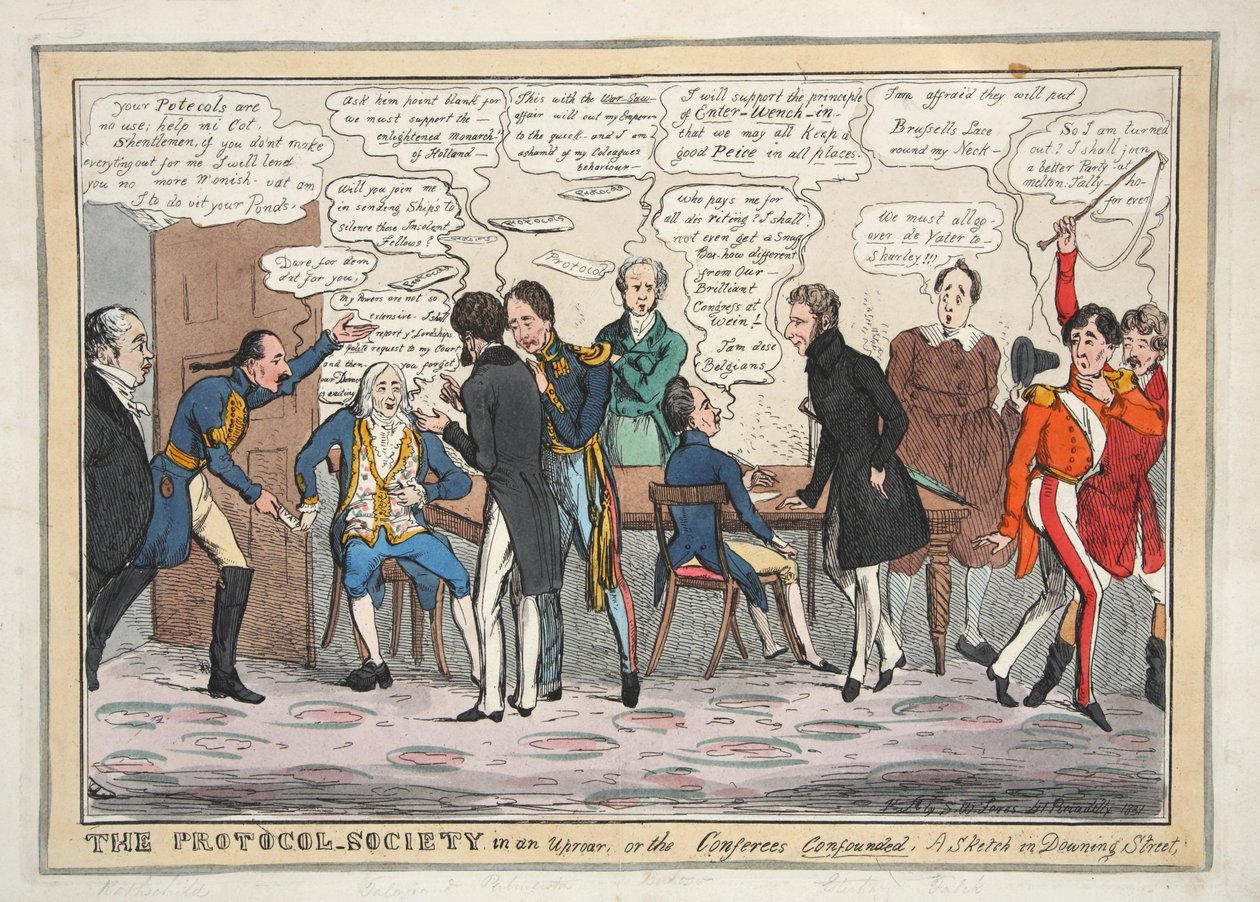 your Potecols are
no use; help mi Cot,
Shentlemen, if you do'nt make
everyting out for me I will lend
you no more M'onish- vat am
I to do vit your Ponds.
Ask him point blank for
we must support the —
enlightened Monarch
of Holland —
This with the War-Saw-
affair will cut my Emperor
to the quick — and I am
asham'd of my Coleagues
behaviour —
I will support the principle
of Enter-Wench-in-
that we may all Keep a
good Peice in all places.
I am affraid they will put
Brussells Lace
round my Neck —
So I am turned
out? I shall join
a better Party at
melton. Tally - ho-
for ever
Will you join me
in sending Ships to
silence these Insolent
Fellows?
Dare, for dem
dat for you,
My Powers are not so
extensive - I shall
report yr Lordships
polite request to my Court
and then you forget
our
is waiting
Protocols
Protocols
Protocols
Protocol
Protocol
Who pays me for
all dis riting? I shall
not even get a Snuff
Box- how different
from Our —
Brilliant
Congress at
Wein!
I am dese
Belgians
We must all go
over de Vater to —
Sharley!!!
Pub by S. W. Fores 41 Piccadilly 1831
THE PROTOCOL-SOCIETY in an Uproar, or the Conferees Confounded, A Sketch in Downing Street,
Rothschild Talleyrand Palmerston Bulow Esterhazy Falck